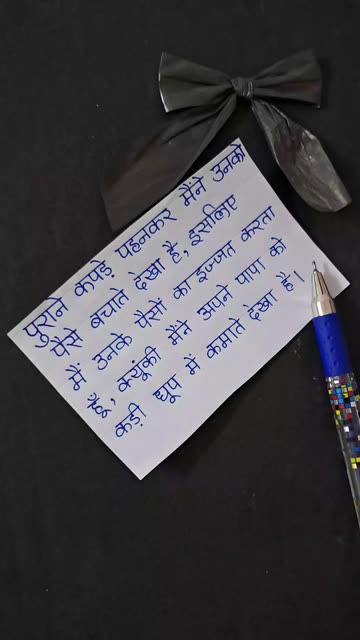 पुराने कपड़े पहनकर मैंने उनको
पैसे बचाते देखा है, इसलिए
मैं उनके पैसों का इज्जत करता
हूँ, क्यूंकी मैंने अपने पापा को
कड़ी धूप में कमाते देखा है।